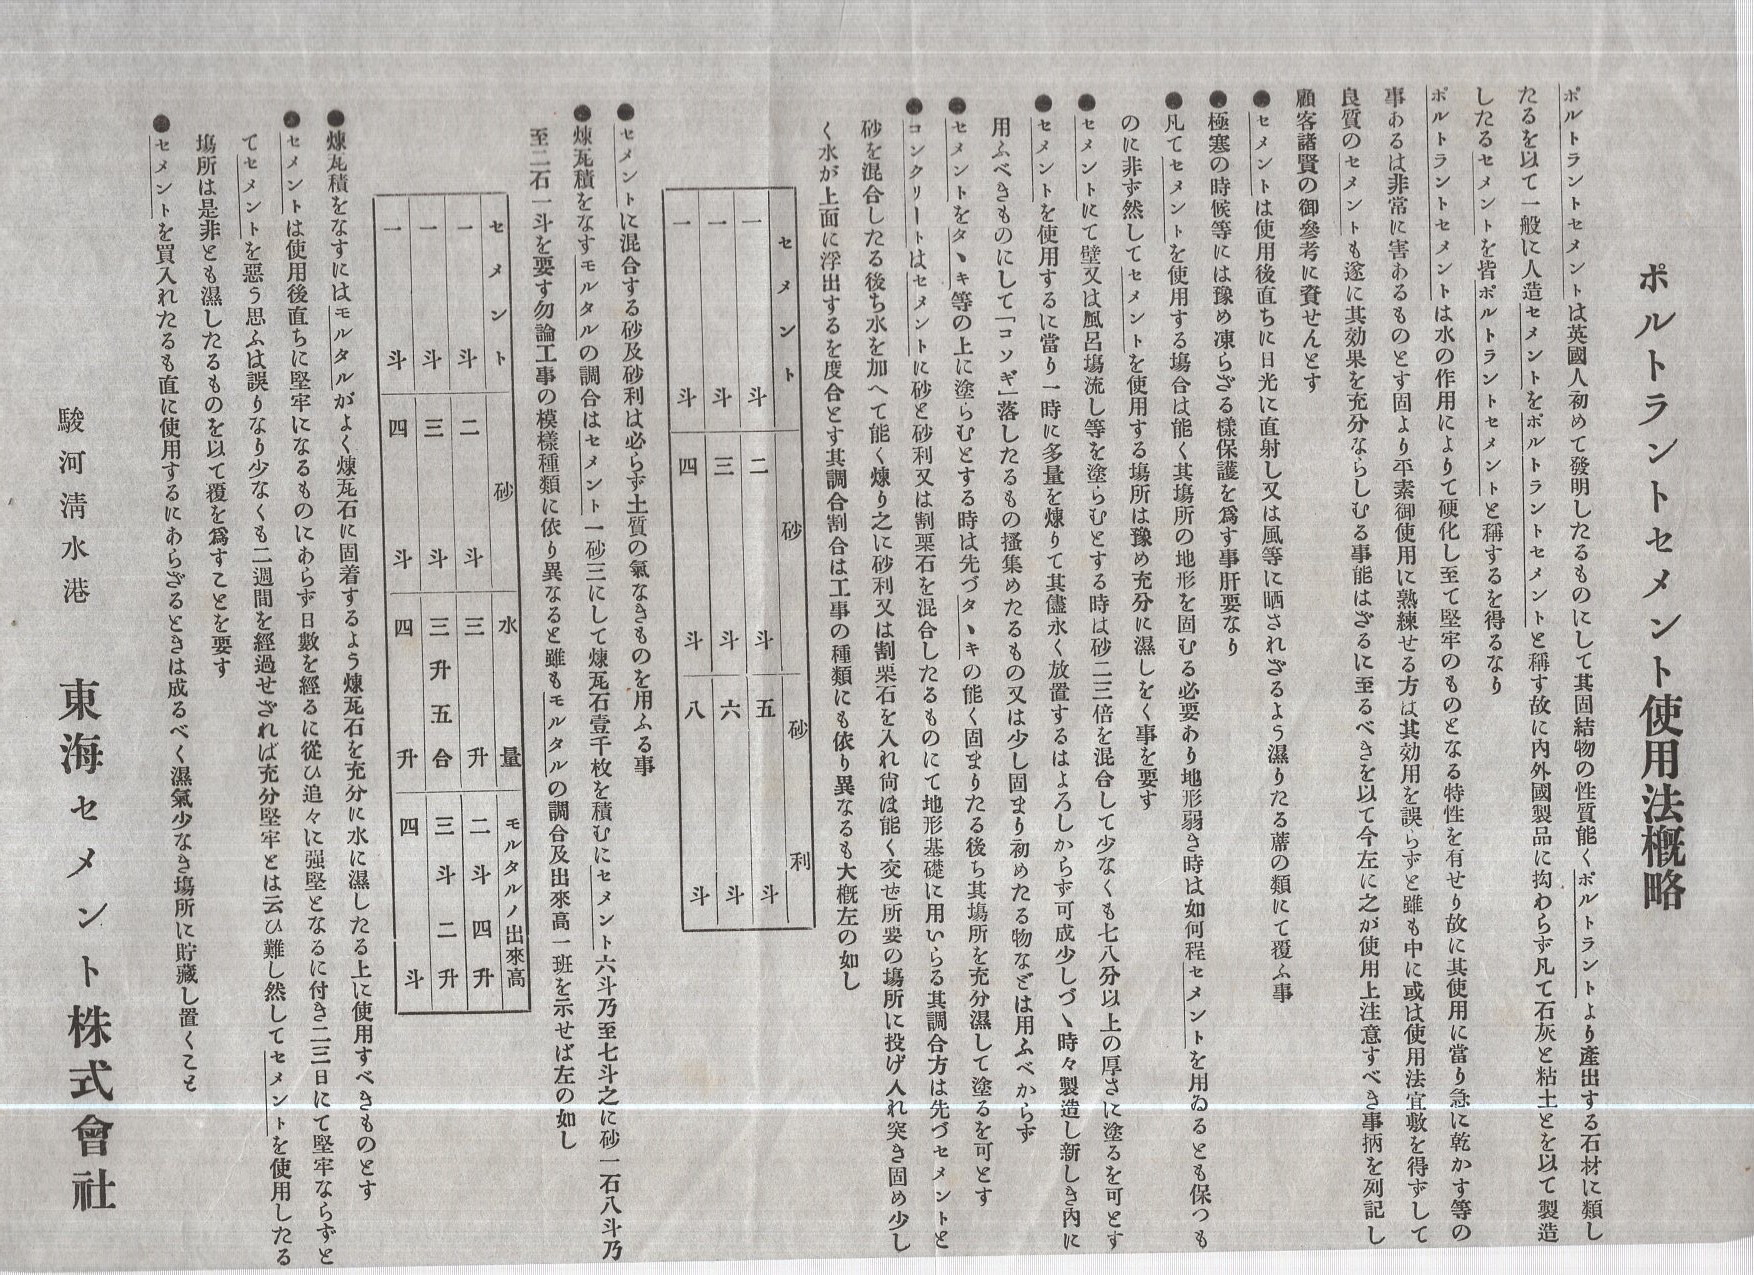 ポルトラントセメント使用法概略
ポルトラントセメントは英國人初めて發明したるものにして其固結物の性質能くポルトラントより產出する石材に類し
たるを以て一般に人造セメントをポルトラントセメントと稱す故に内外國製品に拘わらず凡て石灰と粘土とを以て製造
したるセメントを皆ポルトラントセメントと稱するを得るなり
ポルトラントセメントは水の作用によりて硬化し至て堅牢のものとなる特性を有せり故に其使用に當り急に乾かす等の
事あるは非常に害あるものとす固より平素御使用に熟練せる方は其効用を誤らずと雖も中に或は使用法宜敷を得ずして
良質のセメントも遂に其効果を充分ならしむる事能はざるに至るべきを以て今左に之が使用上注意すべき事柄を列記し
顧客諸賢の御參考に資せんとす
●セメントは使用後直ちに日光に直射し又は風等に晒されざるよう濕りたる蓆の類にて覆ふ事
●極寒の時候等には豫め凍らざる樣保護を爲す事肝要なり
●凡てセメントを使用する塲合は能く其塲所の地形を固むる必要あり地形弱き時は如何程セメントを用ゐるとも保つも
のに非ず然してセメントを使用する塲所は豫め充分に濕しをく事を要す
●セメントにて壁又は風呂塲流し等を塗らむとする時は砂二三倍を混合して少なくも七八分以上の厚さに塗るを可とす
●セメントを使用するに當り一時に多量を煉りて其儘永く放置するはよろしからず可成少しづヽ時々製造し新しき内に
用ふべきものにして「コソギ」落したるもの搔集めたるもの又は少し固まり初めたる物などは用ふべからず
●セメントをタヽキ等の上に塗らむとする時は先づタヽキの能く固まりたる後ち其塲所を充分濕して塗るを可とす
●コンクリートはセメントに砂と砂利又は割栗石を混合したるものにて地形基礎に用いらる其調合方は先づセメントと
砂を混合したる後ち水を加へて能く煉り之に砂利又は割栗石を入れ尙は能く交せ所要の塲所に投げ入れ突き固め少し
く水が上面に浮出するを度合とす其調合割合は工事の種類にも依り異なるも大概左の如し
セメント 砂 砂利
一斗 二斗 五斗
一斗 三斗 六斗
一斗 四斗 八斗
●セメントに混合する砂及砂利は必らず土質の氣なきものを用ふる事
●煉瓦積をなすモルタルの調合はセメント一砂三にして煉瓦石壹千枚を積むにセメント六斗乃至七斗之に砂一石八斗乃
至二石一斗を要す勿論工事の模樣種類に依り異なると雖もモルタルの調合及出來高一班を示せば左の如し
セメント 砂 水量 モルタルノ出來高
一斗 二斗 三升 二斗四升
一斗 三斗 三升五合 三斗二升
一斗 四斗 四升 四斗
●煉瓦積をなすにはモルタルがよく煉瓦石に固着するよう煉瓦石を充分に水に濕したる上に使用すべきものとす
●セメントは使用後直ちに堅牢になるものにあらず日數を經るに從ひ追々に强堅となるに付き二三日にて堅牢ならずと
てセメントを惡う思ふは誤りなり少なくも二週間を經過せざれば充分堅牢とは云ひ難し然してセメントを使用したる
塲所は是非とも濕したるものを以て覆を爲すことを要す
●セメントを買入れたるも直に使用するにあらざるときは成るべく濕氣少なき塲所に貯藏し置くこと
駿河淸水港 東海セメント株式會社